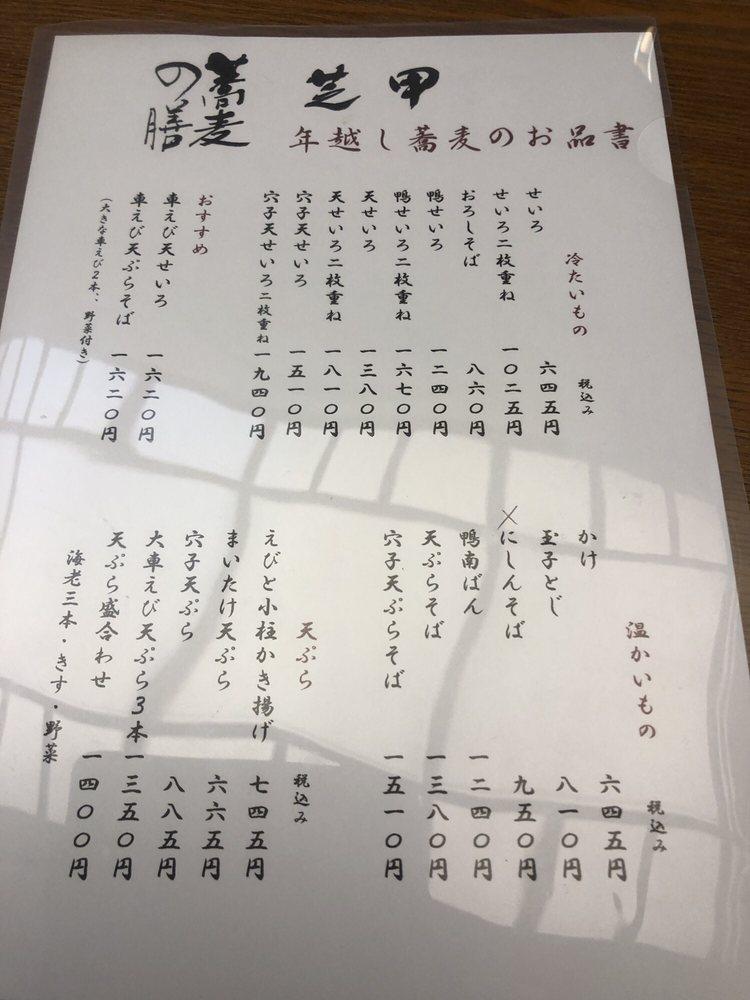 芝甲
蕎麦の膳
年越し蕎麦のお品書
冷たいもの
税込み
せいろ 六四五円
せいろ二枚重ね 一〇二五円
おろしそば 八六〇円
鴨せいろ 一二四〇円
鴨せいろ二枚重ね 一六七〇円
天せいろ 一三八〇円
天せいろ二枚重ね 一八一〇円
穴子天せいろ 一五一〇円
穴子天せいろ二枚重ね 一九四〇円
おすすめ
車えび天せいろ 一六二〇円
車えび天ぷらそば 一六二〇円
(大きな車えび2本、、野菜付き)
温かいもの
税込み
かけ 六四五円
玉子とじ 八一〇円
×にしんそば 九五〇円
鴨南ばん 一二四〇円
天ぷらそば 一三八〇円
穴子天ぷらそば 一五一〇円
天ぷら
税込み
えびと小柱かき揚げ 七四五円
まいたけ天ぷら 六六五円
穴子天ぷら 八八五円
大車えび天ぷら3本 一三五〇円
天ぷら盛合わせ 一四〇〇円
海老三本・きす・野菜